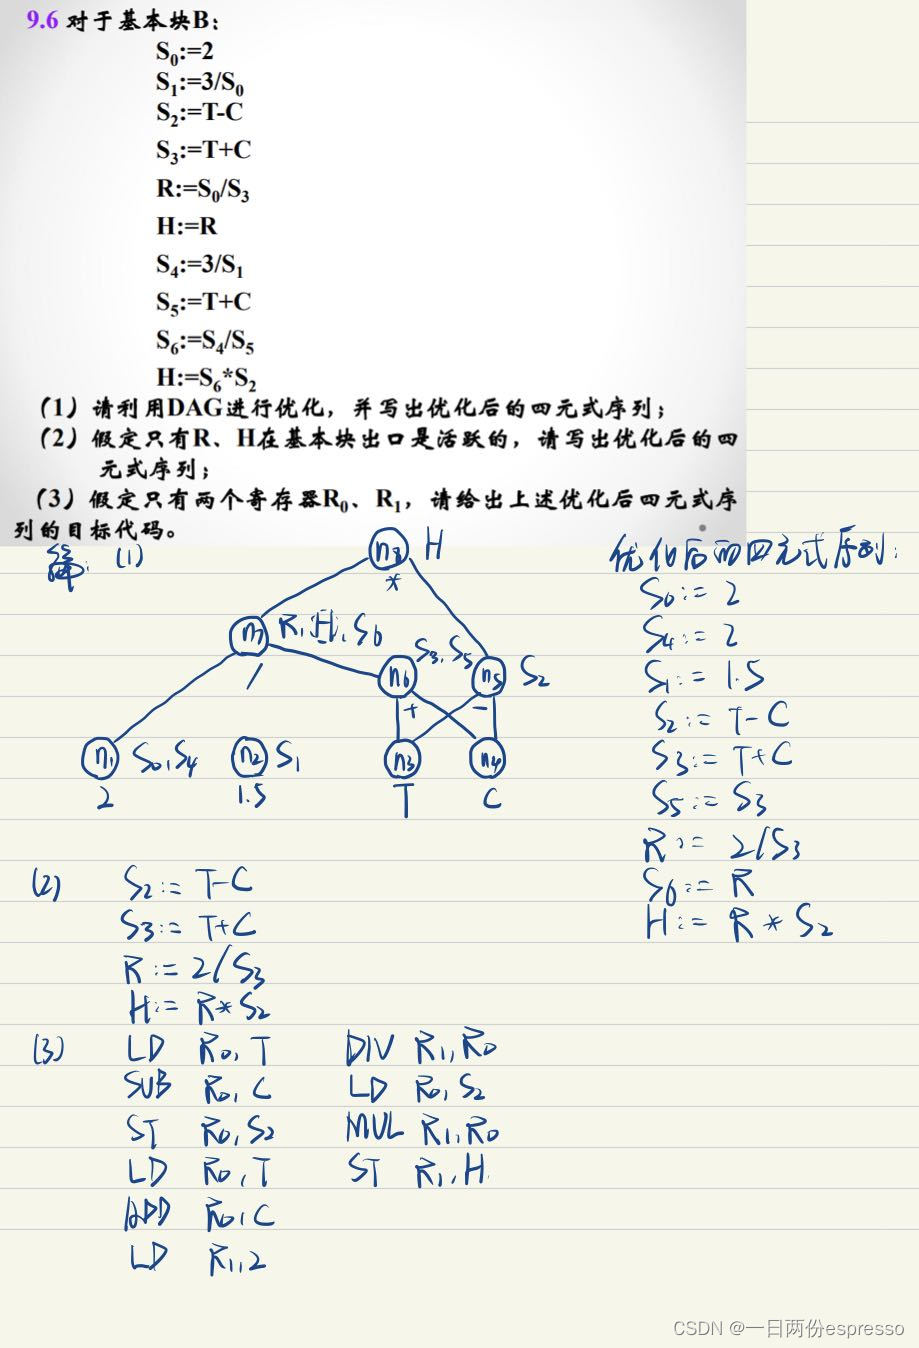 9.6 对于基本块B:
S₀:=2
S₁:=3/S₀
S₂:=T-C
S₃:=T+C
R:=S₀/S₃
H:=R
S₄:=3/S₁
S₅:=T+C
S₆:=S₄/S₅
H:=S₆*S₂
（1）请利用DAG进行优化，并写出优化后的四元式序列；
（2）假定只有R、H在基本块出口是活跃的，请写出优化后的四
元式序列；
（3）假定只有两个寄存器R₀、R₁，请给出上述优化后四元式序
列的目标代码。
解: (1)
n₈ H
*
n₇ R, H, S₆
/
n₆ S₃, S₅
+
n₅ S₂
-
n₁ S₀, S₄
2
n₂ S₁
1.5
n₃
T
n₄
C
优化后的四元式序列:
S₀:= 2
S₄:= 2
S₁:= 1.5
S₂:= T-C
S₃:= T+C
S₅:= S₃
R:= 2/S₃
S₆:= R
H:= R * S₂
(2) S₂:= T-C
S₃:= T+C
R:= 2/S₃
H:= R*S₂
(3) LD R₀, T
SUB R₀, C
ST R₀, S₂
LD R₀, T
ADD R₀, C
LD R₁, 2
DIV R₁, R₀
LD R₀, S₂
MUL R₁, R₀
ST R₁, H
CSDN @一日两份espresso